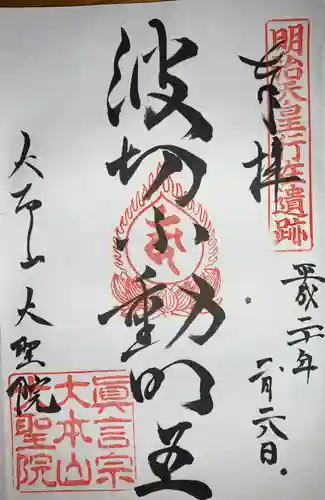 明治天皇行在遺跡
奉拝
平成二十年
月二六日
波切不動明王
大本山大聖院
眞言宗
大本山
大聖院